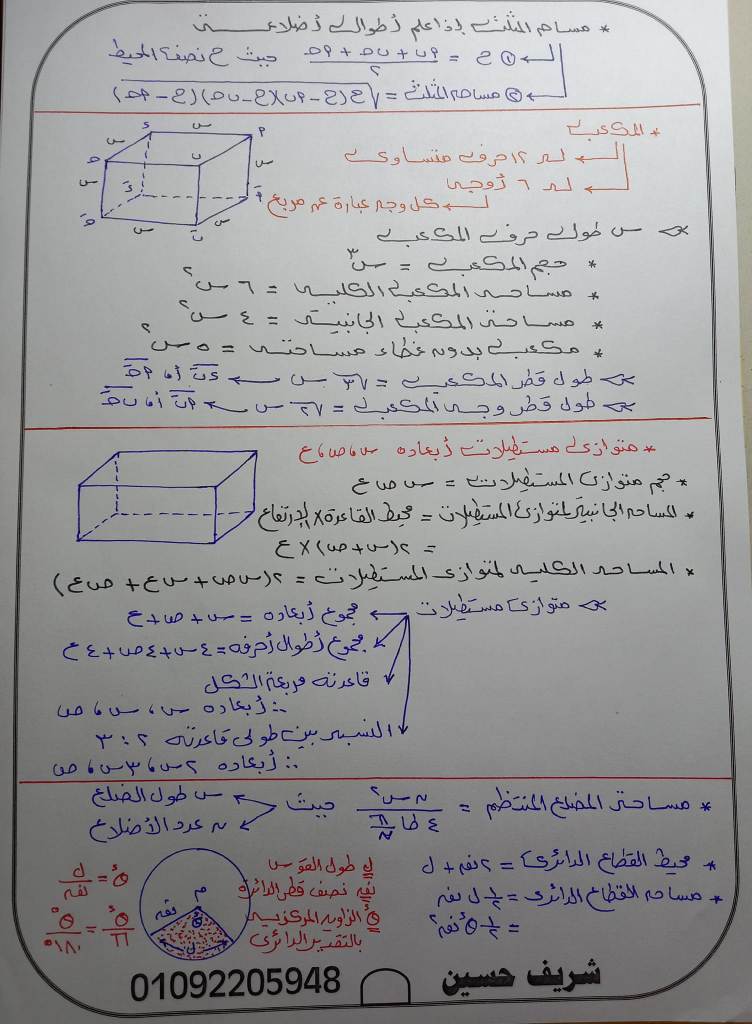 * مساحة المثلث إذا علم أطوال أضلاعه
① ح = (أب + ب حـ + أ حـ) / ٢ حيث ح نصف المحيط
② مساحة المثلث = √ح(ح - أب)(ح - ب حـ)(ح - أ حـ)
* المكعب
له ١٢ حرف متساوى
له ٦ أوجه
كل وجه عبارة عن مربع
س طول حرف المكعب
* حجم المكعب = س٣
* مساحة المكعب الكلية = ٦ س٢
* مساحة المكعب الجانبية = ٤ س٢
* مكعب بدون غطاء مساحته = ٥ س٢
طول قطر المكعب = √٣ س
طول قطر وجه المكعب = √٢ س
* متوازى مستطيلات أبعاده س، ص، ع
* حجم متوازى المستطيلات = س ص ع
* المساحة الجانبية لمتوازى المستطيلات = محيط القاعدة × الارتفاع
= ٢(س + ص) × ع
* المساحة الكلية لمتوازى المستطيلات = ٢(س ص + س ع + ص ع)
متوازى مستطيلات
مجموع أبعاده = س + ص + ع
مجموع أطوال أحرفه = ٤ س + ٤ ص + ٤ ع
قاعدته مربعة الشكل
∴ أبعاده س، س، ص
النسبة بين طولى قاعدته ٢ : ٣
∴ أبعاده ٢ س، ٣ س، ص
* مساحة المضلع المنتظم = ن س٢ / ٤ طا π/ن حيث
س طول الضلع
ن عدد الأضلاع
* محيط القطاع الدائرى = ٢ نق + ل
* مساحة القطاع الدائرى = ١/٢ ل نق
= ١/٢ θء نق٢
ل طول القوس
نق نصف قطر الدائرة
θء الزاوية المركزية
بالتقدير الدائرى
م
نق
θ
ل
θء = ل / نق
θء / π = θ° / ١٨٠°
شريف حسين
01092205948